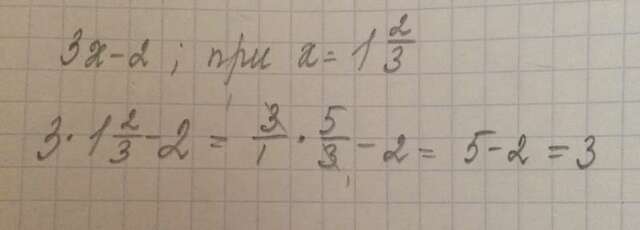 3x-2; при x=1 2/3
3·1 2/3-2 = 3/1·5/3-2 = 5-2=3